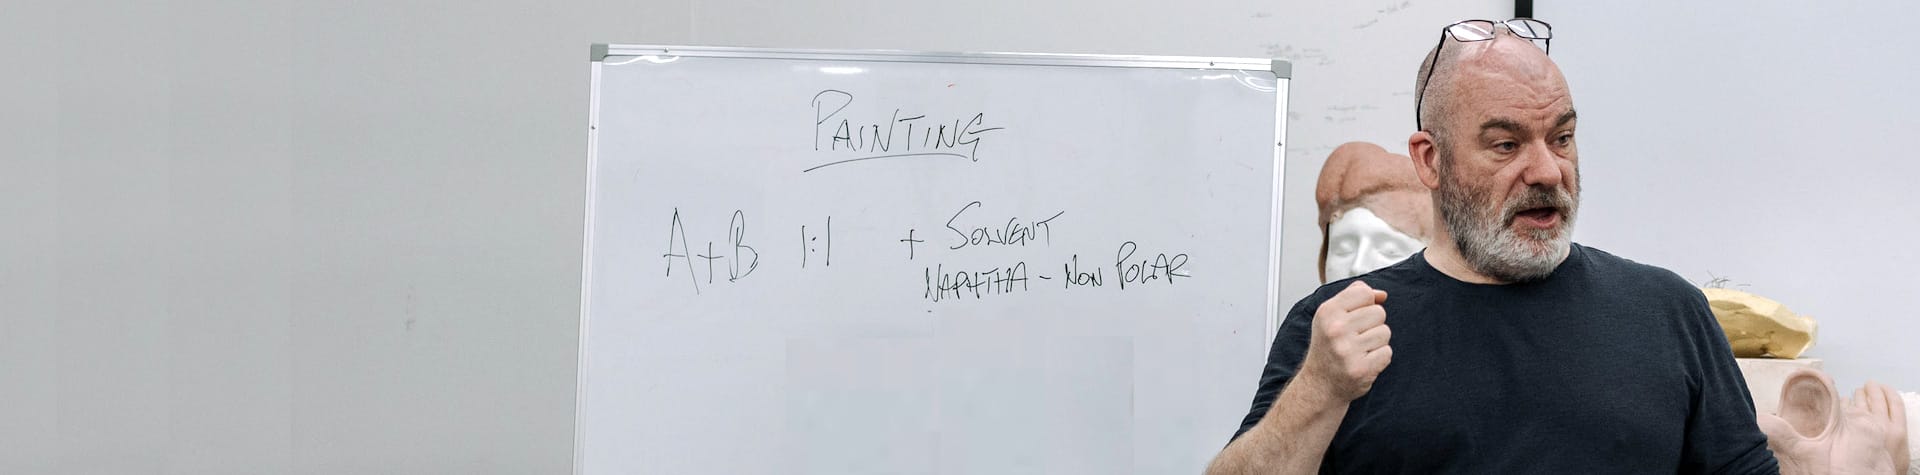 PAINTING
A+B 1:1 + SOLVENT
NAPHTHA - NON POLAR